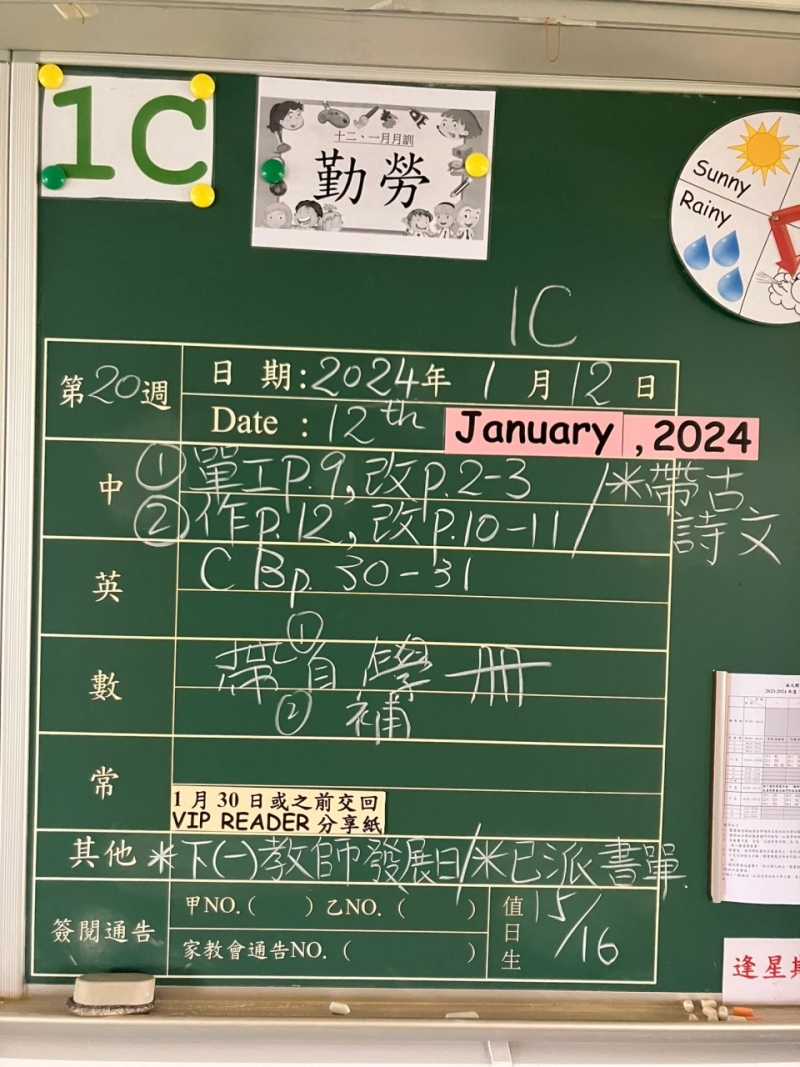 1C
十二、一月月訓
勤勞
Sunny
Rainy
1C
第20週
日 期:2024年 1 月 12 日
Date : 12th January , 2024
中 ① 單工p.9, 改p.2-3 /*帶古
② 作p.12, 改p.10-11/ 詩文
英 CBp. 30-31
數 ① 帶自學冊
② 補
常
1月30日或之前交回
VIP READER 分享紙
其他 *下(一)教師發展日/*已派書單
簽閱通告 甲NO.( ) 乙NO.( )
家教會通告NO.( )
值日生 15/16
逢星期